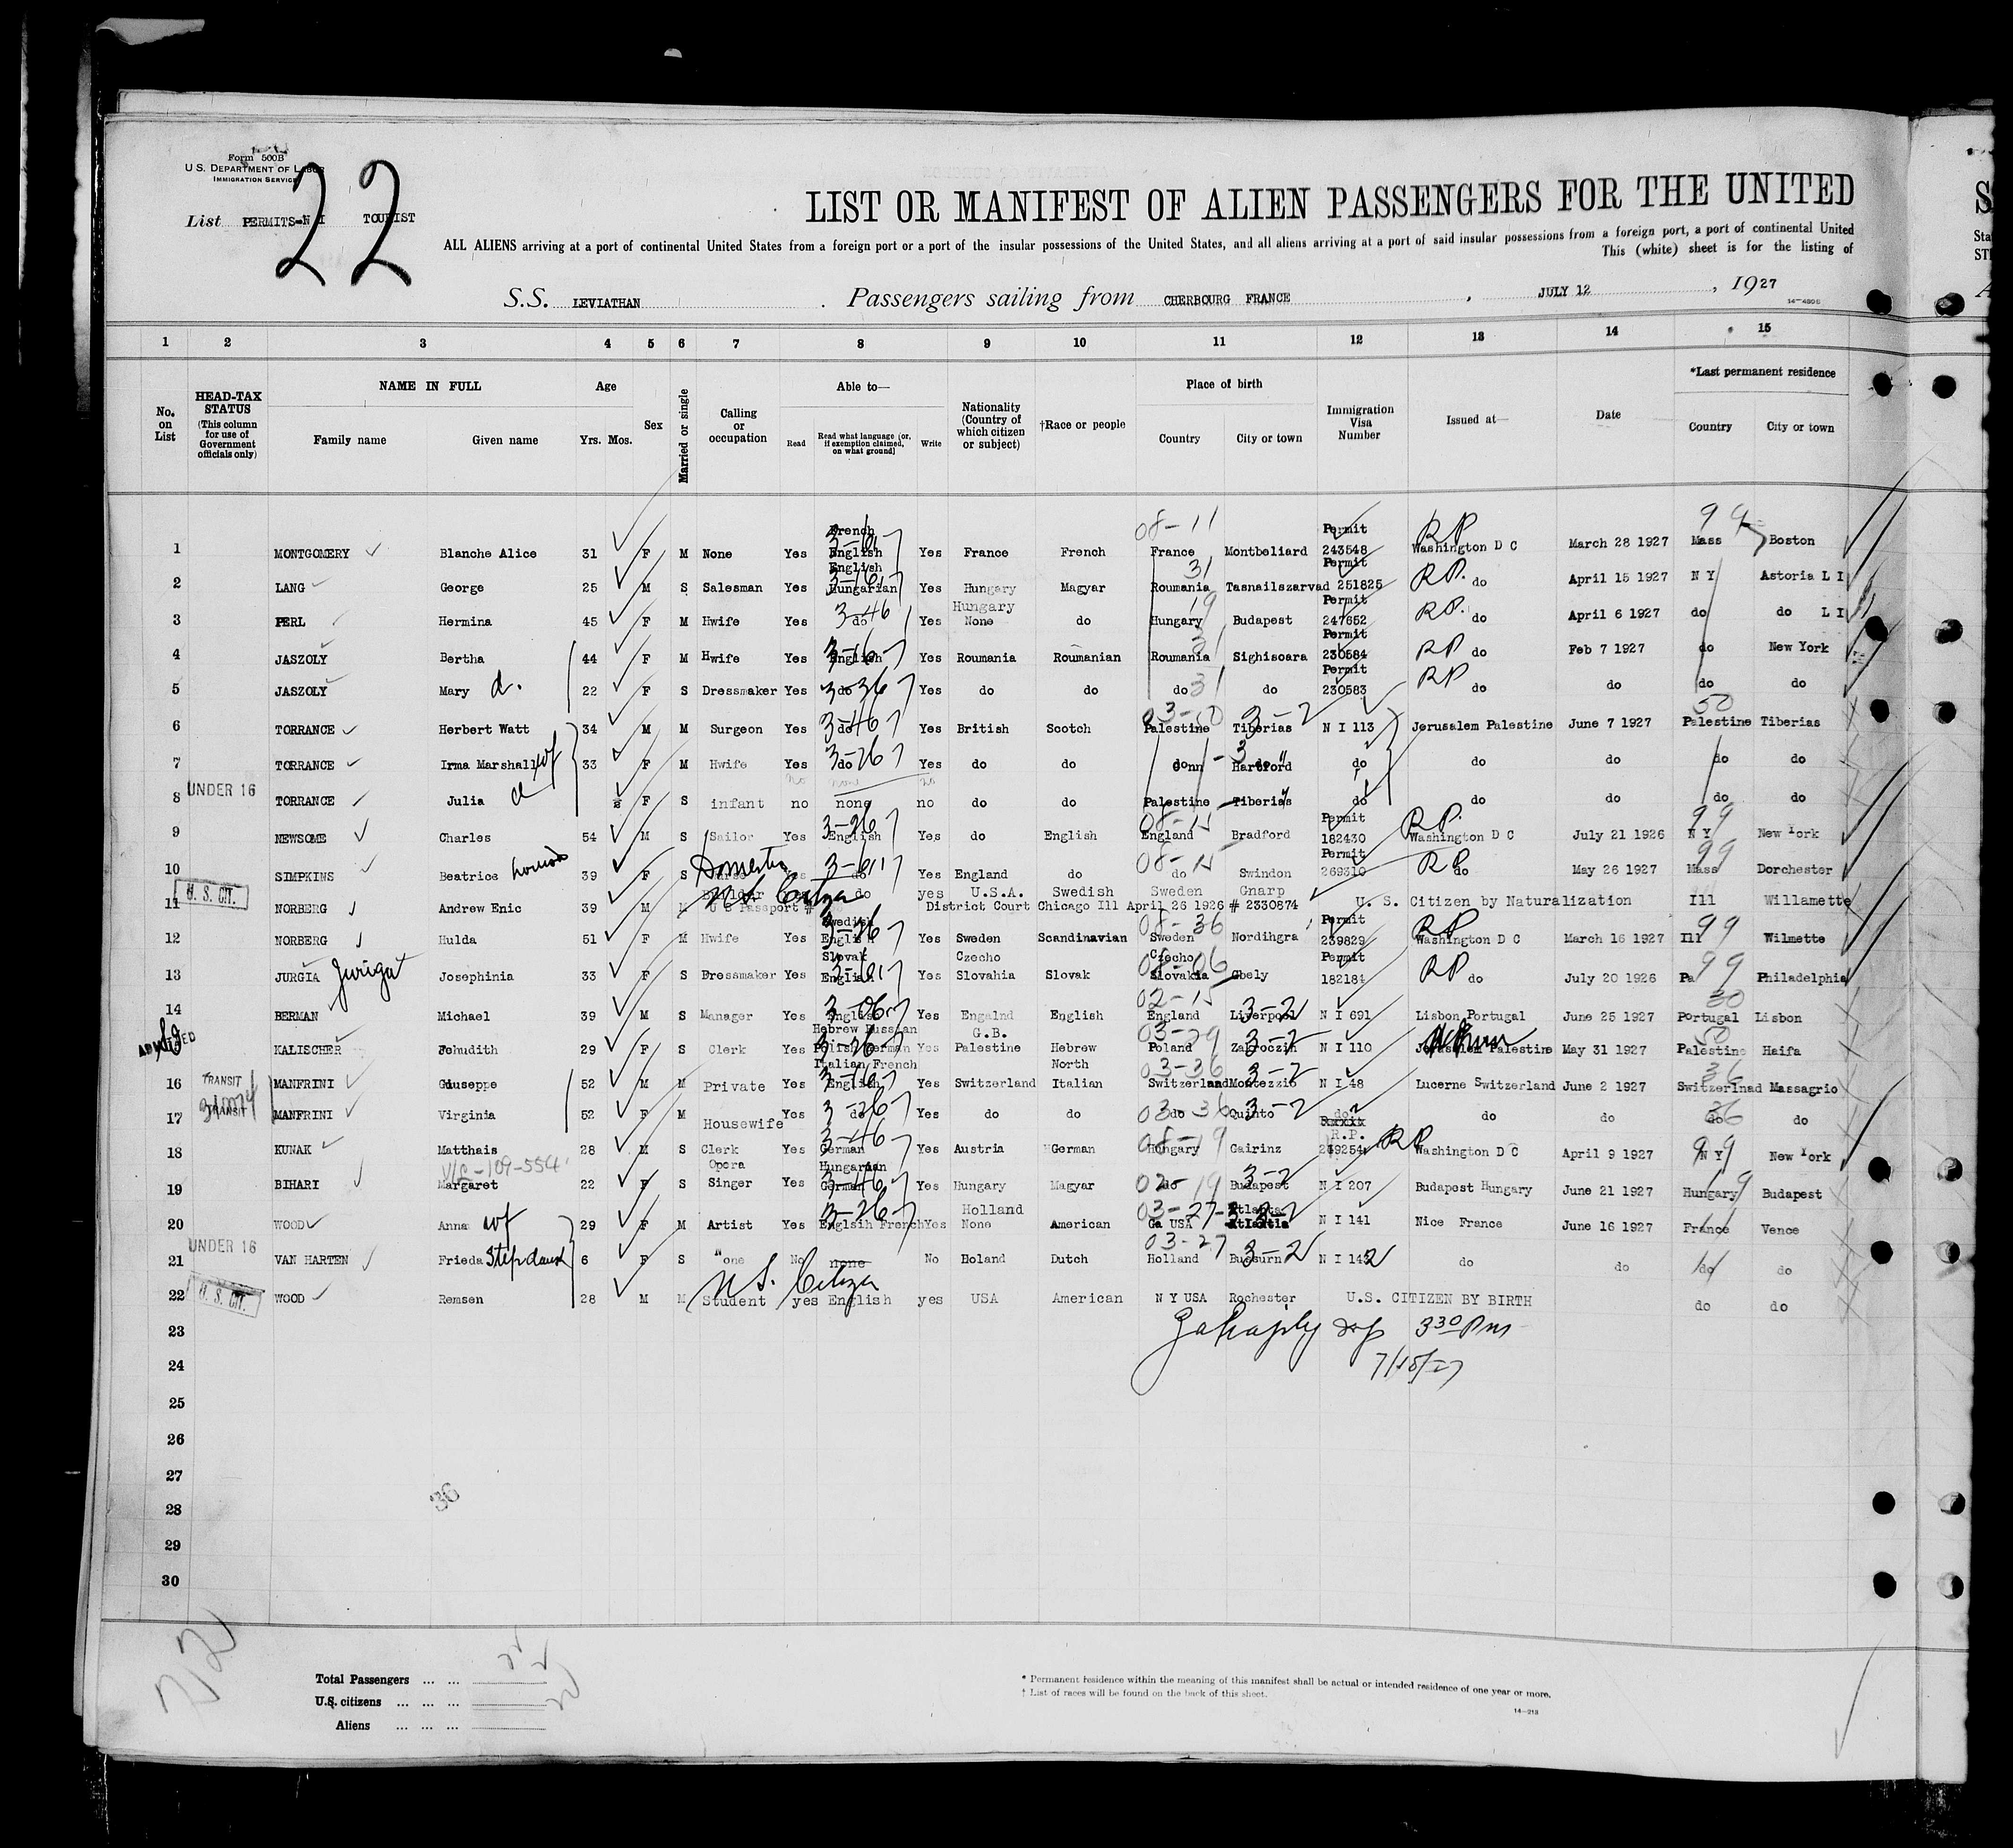 Form 500B
U. S. DEPARTMENT OF LABOR
IMMIGRATION SERVICE
22
List PERMITS-N I TOURIST
LIST OR MANIFEST OF ALIEN PASSENGERS FOR THE UNITED
ALL ALIENS arriving at a port of continental United States from a foreign port or a port of the insular possessions of the United States, and all aliens arriving at a port of said insular possessions from a foreign port, a port of continental United
This (white) sheet is for the listing of
S.S. LEVIATHAN . Passengers sailing from CHERBOURG FRANCE , JULY 12 , 1927
1 2 3 4 5 6 7 8 9 10 11 12 13 14 15
No. on List
HEAD-TAX STATUS (This column for use of Government officials only)
NAME IN FULL Family name Given name
Age Yrs. Mos.
Sex
Married or single
Calling or occupation
Able to— Read Read what language (or, if exemption claimed, on what ground) Write
Nationality (Country of which citizen or subject)
†Race or people
Place of birth Country City or town
Immigration Visa Number
Issued at—
Date
*Last permanent residence Country City or town
1 MONTGOMERY Blanche Alice 31 F M None Yes French English Yes France French 08-11 France Montbeliard Permit 243548 RP Washington D C March 28 1927 99 Mass Boston
2 LANG George 25 M S Salesman Yes English Hungarian Yes Hungary Magyar 31 Roumania Tasnailszarvad Permit 251825 RP. do April 15 1927 N Y Astoria L I
3 PERL Hermina 45 F M Hwife Yes do Yes Hungary None do 19 Hungary Budapest Permit 247652 RP. do April 6 1927 do do L I
4 JASZOLY Bertha 44 F M Hwife Yes English Yes Roumania Roumanian 31 Roumania Sighisoara Permit 230584 RP do Feb 7 1927 do New York
5 JASZOLY Mary d. 22 F S Dressmaker Yes do Yes do do do 31 do Permit 230583 RP do do do do
6 TORRANCE Herbert Watt 34 M M Surgeon Yes do Yes British Scotch Palestine Tiberias 3-2 N I 113 Jerusalem Palestine June 7 1927 50 Palestine Tiberias
7 TORRANCE Irma Marshall wf 33 F M Hwife Yes do Yes do do Conn Hartford do do do do do
UNDER 16
8 TORRANCE Julia d F S infant no none no do do Palestine Tiberias do do do do do
9 NEWSOME Charles 54 M S Sailor Yes English Yes do English England Bradford Permit 182430 RP. Washington D C July 21 1926 99 N Y New York
10 SIMPKINS Beatrice 39 F S Domestic do Yes England do do Swindon Permit 269310 RP do May 26 1927 99 Mass Dorchester
U. S. CIT.
11 NORBERG Andrew Enic 39 M M US Citizen do yes U.S.A. Swedish Sweden Gnarp U. S. Citizen by Naturalization Ill Willamette
U S Passport # District Court Chicago Ill April 26 1926 # 2330874
12 NORBERG Hulda 51 F M Hwife Yes Swedish English Yes Sweden Scandinavian 08-36 Sweden Nordihgra Permit 239829 RP Washington D C March 16 1927 99 Ill Wilmette
13 JURGIA Jurigat Josephinia 33 F S Dressmaker Yes Slovak English Yes Czecho Slovahia Slovak 08-06 Czecho Slovakia Gbely Permit 182184 RP do July 20 1926 99 Pa Philadelphia
14 BERMAN Michael 39 M S Manager Yes English Yes Engalnd English 02-15 England Liverpool 3-2 N I 691 Lisbon Portugal June 25 1927 30 Portugal Lisbon
ADMITTED
KALISCHER Jehudith 29 F S Clerk Yes Hebrew Russian Polish German Yes G.B. Palestine Hebrew 03-29 Poland Zakroczin 3-2 N I 110 Jerusalem Palestine May 31 1927 50 Palestine Haifa
16 TRANSIT MANFRINI Giuseppe 52 M M Private Yes Italian French English Yes Switzerland North Italian 03-36 Switzerland Montezzio 3-2 N I 48 Lucerne Switzerland June 2 1927 36 Switzerlnad Massagrio
17 TRANSIT MANFRINI Virginia 52 F M Housewife Yes do Yes do do 03 do 36 Quinto 3-2 do do do 36 do do
18 KUNAK Matthais 28 M S Clerk Yes German Yes Austria German 08-19 Hungary Gairinz R.P. 239254 RP Washington D C April 9 1927 99 N Y New York
V/L-109-554
19 BIHARI Margaret 22 F S Opera Singer Yes Hungarian German Yes Hungary Magyar 02 do 19 Budapest 3-2 N I 207 Budapest Hungary June 21 1927 19 Hungary Budapest
20 WOOD Anna wf 29 F M Artist Yes Englsih French Yes Holland None American 03-27 Ga USA Atlanta N I 141 Nice France June 16 1927 11 France Vence
UNDER 16
21 VAN HARTEN Frieda Stepdaust 6 F S None No none No Holand Dutch 03-27 Holland Bussurn 3-2 N I 142 do do do do
U. S. CIT.
22 WOOD Remsen 28 M M US. Citizen Student yes English yes USA American N Y USA Rochester U.S. CITIZEN BY BIRTH do do
23 3 30 Pm
24 7/18/27
25
26
27
36
28
29
30
Total Passengers ... ...
U.S. citizens ... ... ...
Aliens ... ... ...
* Permanent residence within the meaning of this manifest shall be actual or intended residence of one year or more.
† List of races will be found on the back of this sheet.
14-213